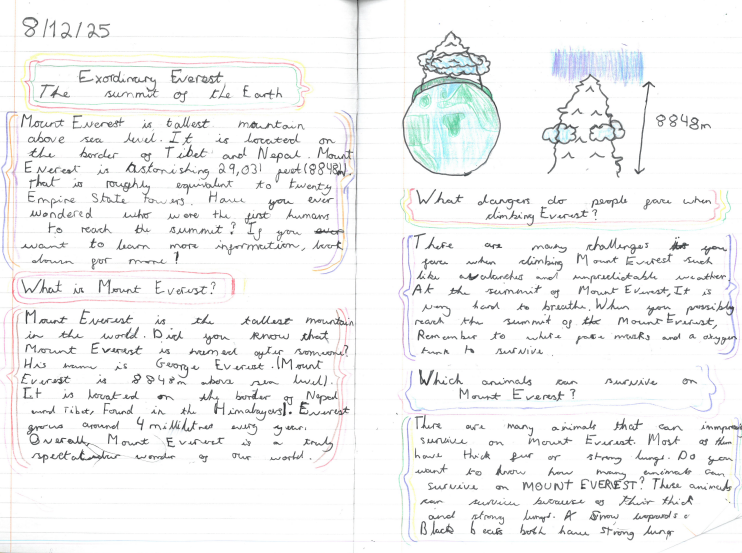 8/12/25
Exordinary Everest,
The summit of the Earth
Mount Everest is tallest mountain
above sea level. It is located on
the border of Tibet and Nepal. Mount
Everest is Astonishing 29,031 feet (8848m).
That is roughly equivalent to twenty
Empire State towers. Have you ever
wondered who were the first humans
to reach the summit? If you
want to learn more information, look
down for more!
What is Mount Everest?
Mount Everest is the tallest mountain
in the world. Did you know that
Mount Everest is named after someone?
His name is George Everest. (Mount
Everest is 8848m above sea level).
It is located on the border of Nepal
and Tibet, Found in the Himalayas). Everest
grows around 4 millimetres every year.
Overall, Mount Everest is a truly
spectacular wonder of our world.
8848m
What dangers do people face when
climbing Everest?
There are many challenges you
face when climbing Mount Everest such
like avalanches and unpredictable weather.
At the summit of Mount Everest, It is
very hard to breathe. When you possibly
reach the summit of the Mount Everest,
Remember to face masks and a oxygen
tank to survive.
Which animals can survive on
Mount Everest?
There are many animals that can
survive on Mount Everest. Most of them
have thick fur or strong lungs. Do you
want to know how many animals can
survive on MOUNT EVEREST? These animals
can survive because of their thick
and strong lungs. A Snow
Black bears both have strong lungs